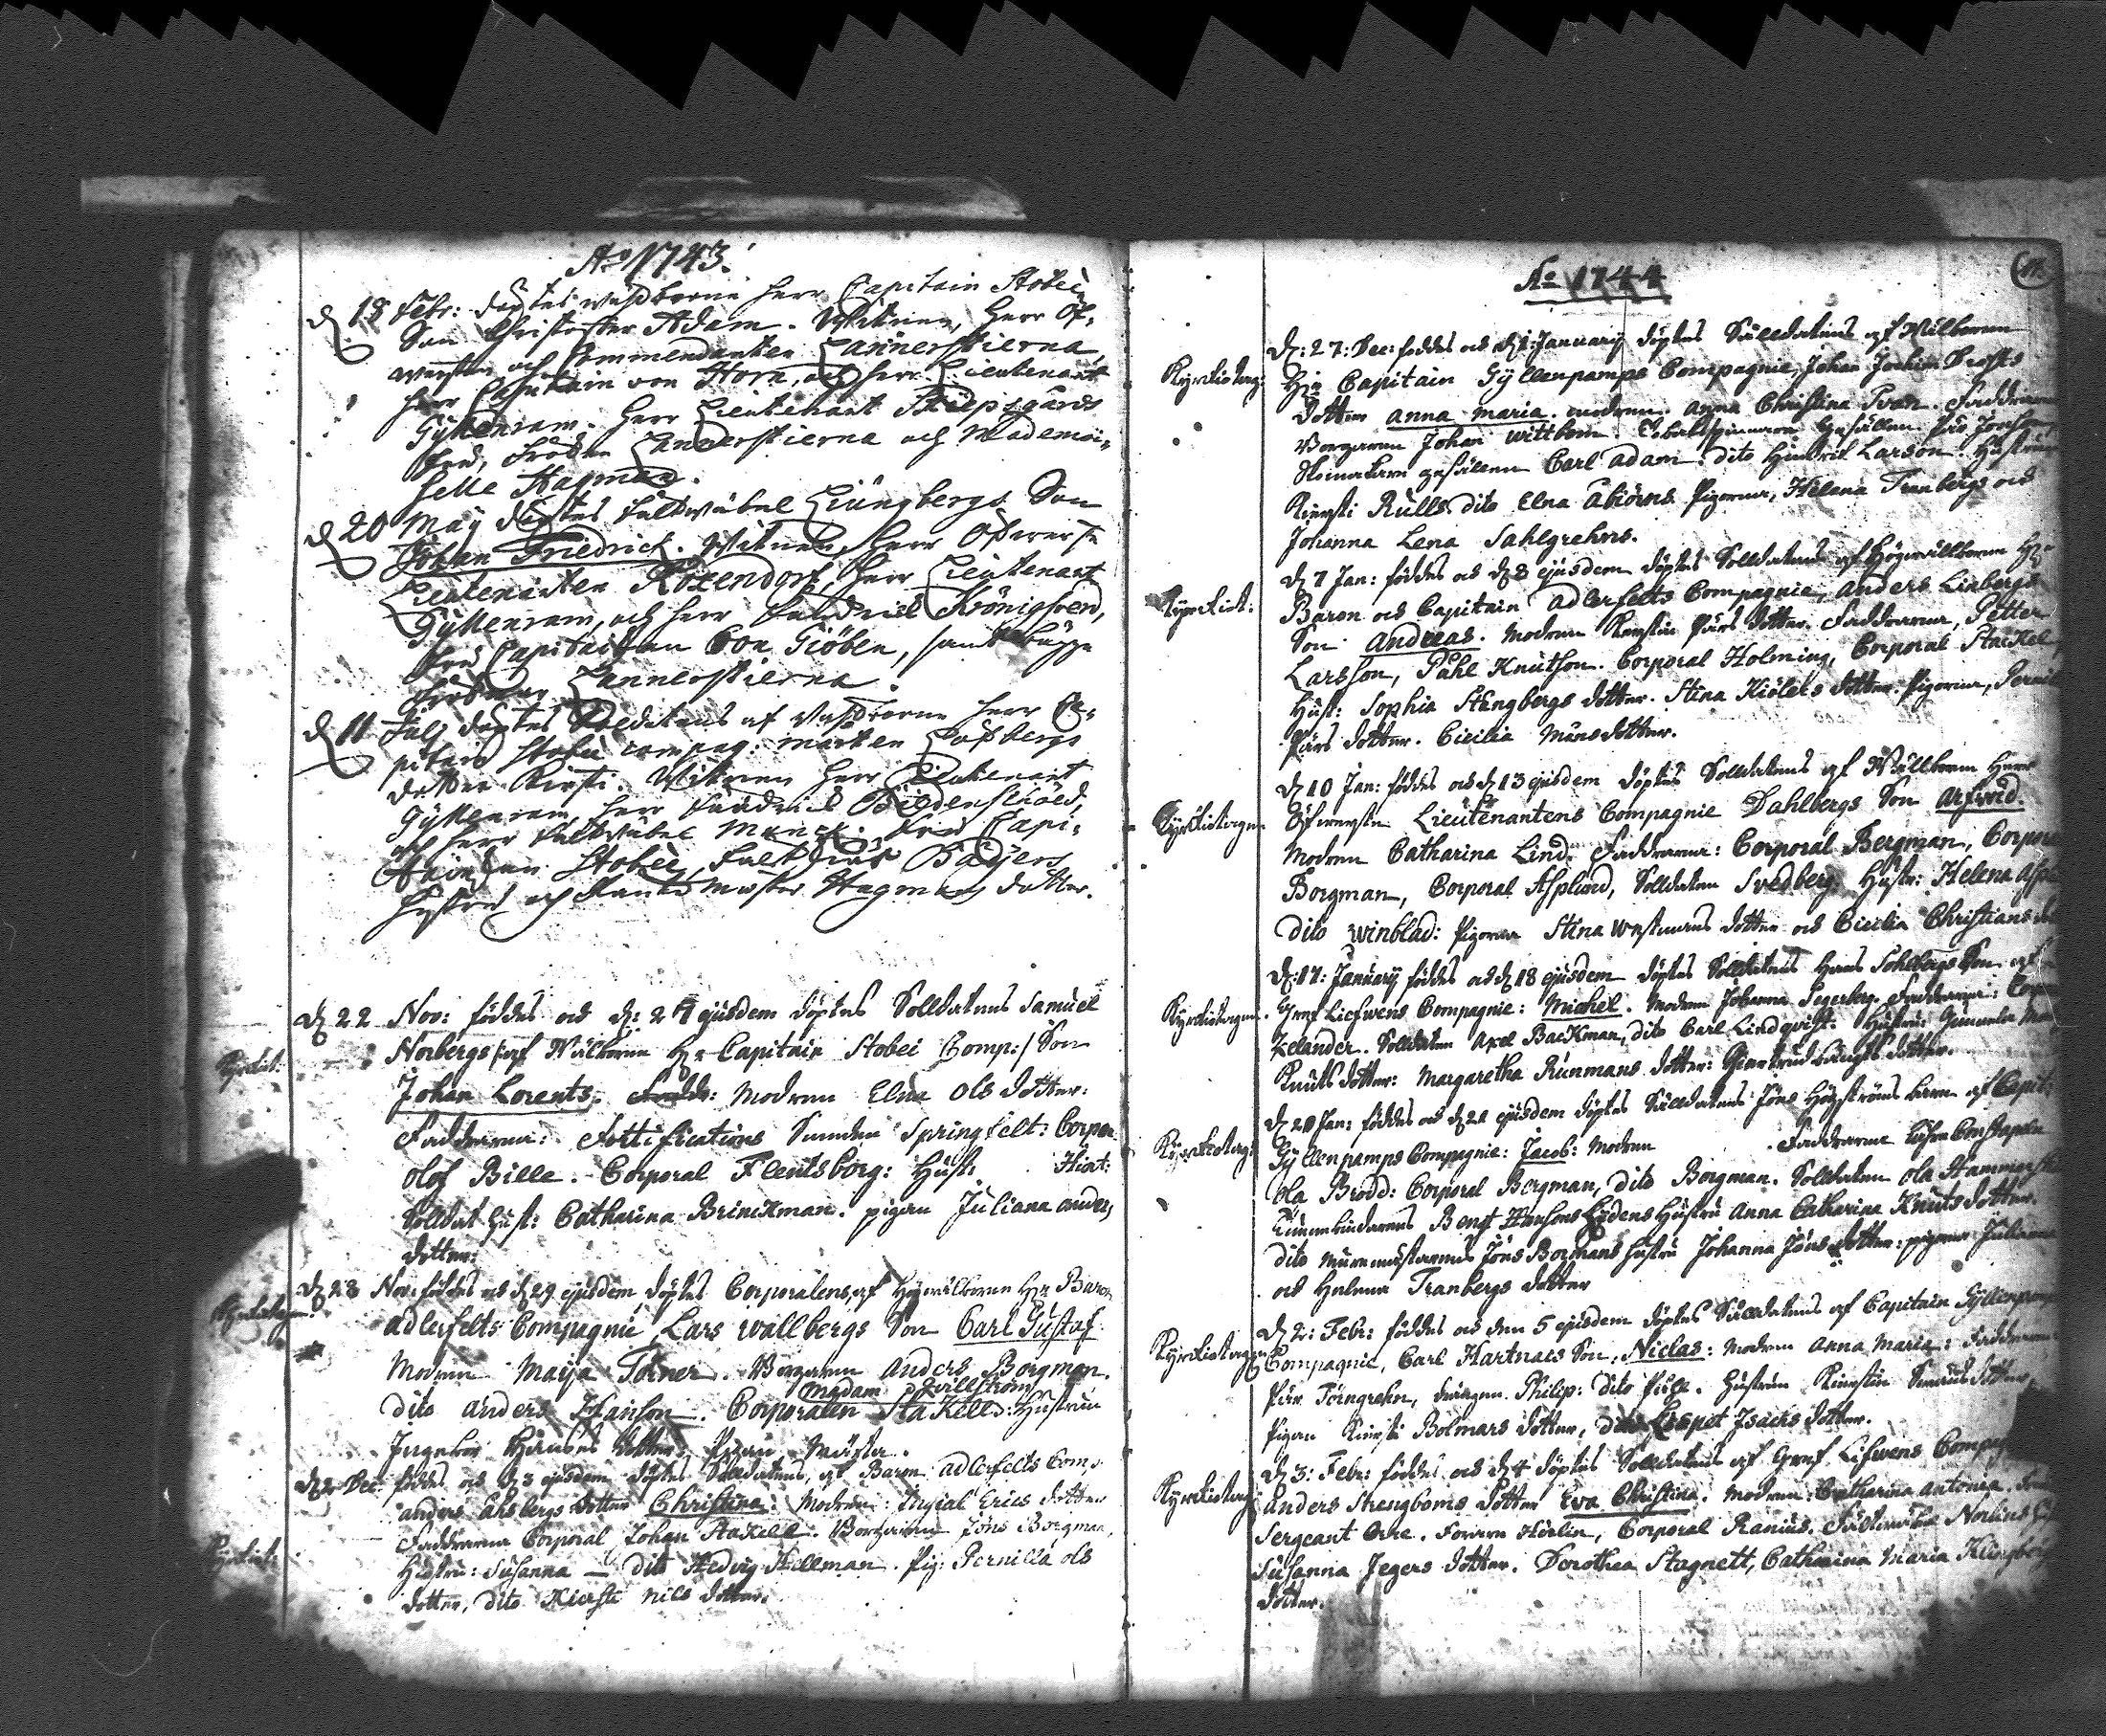 Ao 1743.
d 18 Febr: döptes wälborne herr Capitain Stobei
Son Christoffer Adam. Witnen, Herr Öf-
wersten och Commendanten Lannerstierna
herr Capitain von Horn, och herr Lieutenant
Gyllenram. herr Lieutenant
fru, Fröken Lannerstierna och Mademoi-
selle Hagman.
d 20 Maij döptes fältwäbel Liungbergs Son
Johan Friedrich. Witnen, Herr Öfwerste
Lieutenanten Rozendorf, herr Lieutenant
Gyllenram, och herr Fendrick Königsven,
fru Capitaiskan von Giöben, samt bägge
fröknar Lannerstierna.
d 11 Julj döptes Soldatens af wälborne herr Ca-
pitain Stobei compag: Mårten Löfbergs
dotter Kersti. Witnen herr Lieutenant
Gyllenram, herr Fendrick Bildensköld,
och herr fältwäbel Munck. fru Capi-
tainskan Stobei, Fältskiärs Baijers
hustru och Munster Hagmans dotter.
d 22 Nov: föddes och d: 27 ejusdem döptes Solldatens Samuel
Norbergs /: af Wälborne Hr Capitain Stobei Comp:/ Son
Kyrckiot:
Johan Lorents. Modren Elna Ols dotter:
Faddrarna: Fortifications Springfelt: Corpor:
Olof Bille. Corporal Flentsborg: Hust:
Solldat hust: Catharina Brinckman. pigan Juliana anders
dotter:
d 28 Nov: föddes och d 29 ejusdem döptes Corporalens, af Högwälborne Hr Baron
adlerfelts Compagnie Lars Wallbergs Son Carl Gustaf.
Modren Maija Torner. Borgaren Anders Borgman.
Madam Qvillström
dito anders Hanson. Corporalen Stakell: Hustru
Ingebor Hanses dotter, Pigan Märta.
d 2 Dec: föddes och d 3 ejusdem döptes Solldatens, af Baron adlerfelts Comp:
anders Åhsbergs dotter Christina: Modren: Ingial Erics dotter
Faddrarna Corporal Johan Stakell. Borgaren Jöns Borgman,
Kyrckiot:
Hustru: Susanna — dito Hedvig Hellman. Pig: Pernilla Ols
dotter, dito Kiersti Nils dotter.
Ao 1744
d: 27: Dec: föddes och d 1: January döptes Solldatens af Wälborne
Kyrckiotag:
Hr Capitain Gyllenpamps Compagnie, Johan Jochim Drosts
dotter anna maria. modren. anna Christina Fraddrarna
Borgaren Johan Wittbom. Tobakspinnare Gesällen Pär Jönson
Skomakare gesällen Carl adam. dito Hindrik Larson. Hustru
Kiersti Rulls dito Elna Åbiörns. Pigorna, Helena Tranbergs och
Johanna Lena Sahlgrehns.
d 7 Jan: föddes och d 8 ejusdem döptes Solldatens af Högwällborne Hr
Kyrckiot:
Baron och Capitain Adlerfelts Compagnie, Anders Linbergs
Son Andreas. Modren Kerstin Pärs dotter. Faddrarna, Petter
Larsson, Påhl Knutson. Corporal Holming, Corporal Stackel
Hust: Sophia Stengbergs dotter. Stina Kiölers dotter. Pigorna, Pernilla
Pärs dotter. Cicilia Månsdotter.
d 10 Jan: föddes och d 13 ejusdem döptes Solldatens af Wällborne Herr
Kyrckiotagen
Öfwersten Lieutenantens Compagnie Dahlbergs Son Arfwid.
Modren Catharina Lind. Faddrarna: Corporal Bergman, Corporal
Borgman, Corporal Asplund, Solldaten Svedberg. Hustr: Helena Aspl
dito Winblad: Pigorna Stina Westmans dotter och Cicilia Christians do
d: 17: January föddes och d 18 ejusdem döptes Solldatens Hans Sohlbergs Son af
Kyrckiotagen.
Gref Liefwens Compagnie: Michel. Modren Johanna Segerberg. Faddrarna: Corporal
Zelander. Solldaten Axel Backman, dito Carl Lindqvist. Hustru: Gunnela
Knuts dotter: Margaretha Runmans dotter: Giertrud Bengts dotter.
d 20 Jan: föddes och d 21 ejusdem döptes Solldatens Jöns Högströms barn af Capit:
Kyrckiotag:
Gyllenpamps Compagnie: Jacob: Modren Faddrarne
Ola Brodd: Corporal Bergman, dito Borgman. Solldaten Ola Hammar
Bengt Hansons Lydens Hustru Anna Catharina Knuts dotter.
dito Murmästarens Jöns Borgmans hustru Johanna Jöns dotter: pigorna Juliana
och Helena Tranbergs dotter
d 2: Febr: föddes och den 5 ejusdem döptes Solldatens af Capitain Gyllenpamps
Kyrckiotagen
Compagnie, Carl Hartnacs Son, Niclas: Modren Anna Maria: Faddrarna
Pär Törngrehn, drängen Philip: dito Hustrun Kierstin Svens dotter,
Pigan Kiersti Bolmars dotter, dito Lispet Isacks dotter.
d 3: Febr: föddes och d 4 döptes Solldatens af Gref Lifwens Compag
Kyrckiotag:
Anders Strengboms dotter Eva Christina. Modren Catharina Antonia.
Sergeant Orre. Corporal Ranius. Fältwäbel Norlins
Susanna Jegers dotter. Dorothea Stagnett, Catharina Maria Klingbor
dotter.